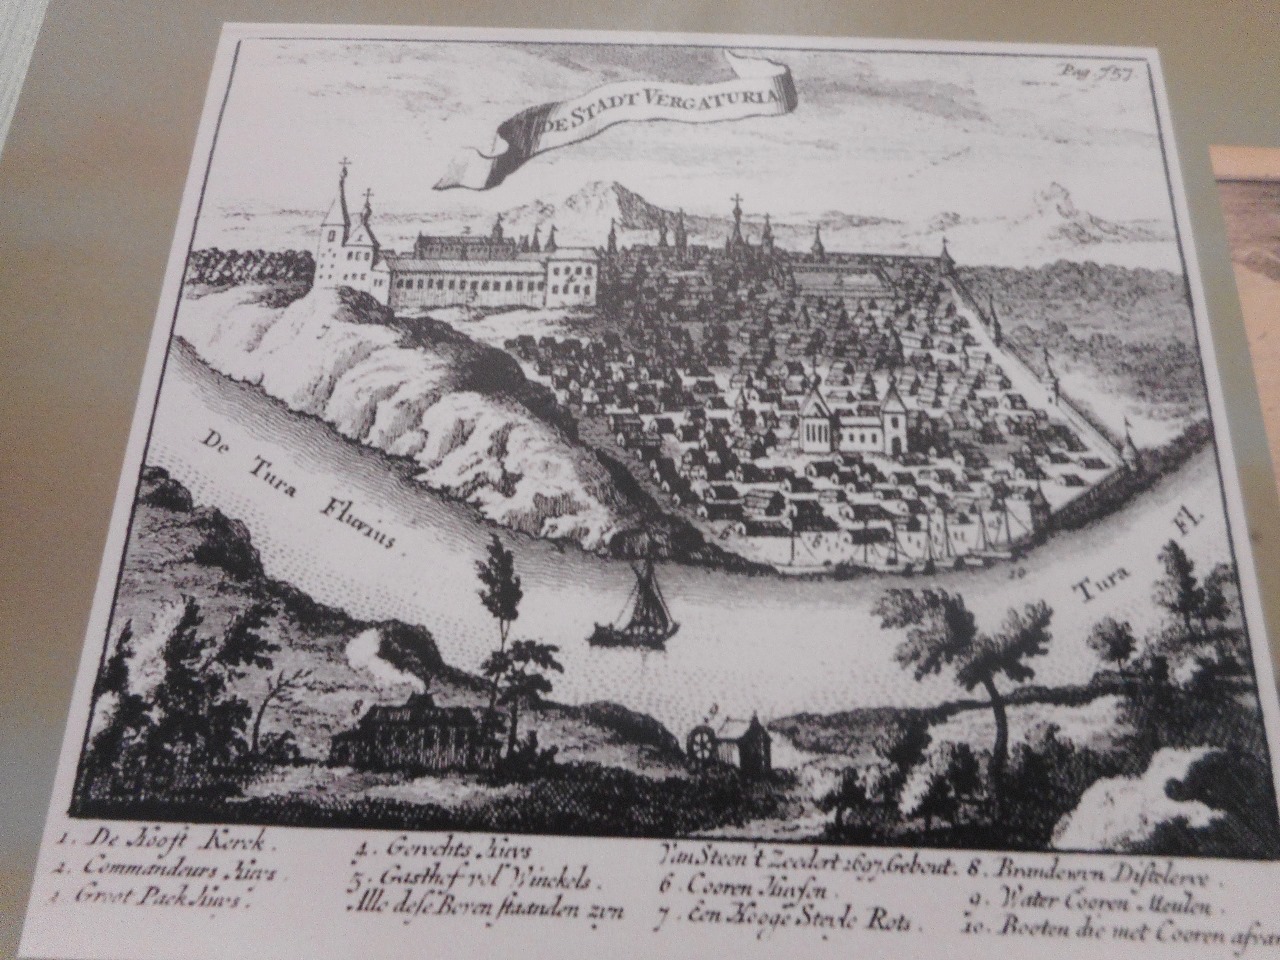 Pag 757
DE STADT VERGATURIA
De Tura Fluvius.
Tura Fl.
6
8
10
8
9
1. De Hooft Kerck.
2. Commandeurs Huys.
3. Groot Pack Huys.
4. Gerechts Huys
5. Gasthof vol Winckels.
Alle dese Boven staanden zyn
Van Steen 't Zeedert 1697. Gebout.
6. Cooren Huysen.
7. Een Hooge Steyle Rots.
8. Brandewyn Distelerye.
9. Water Cooren Meulen.
10. Booten die met Cooren